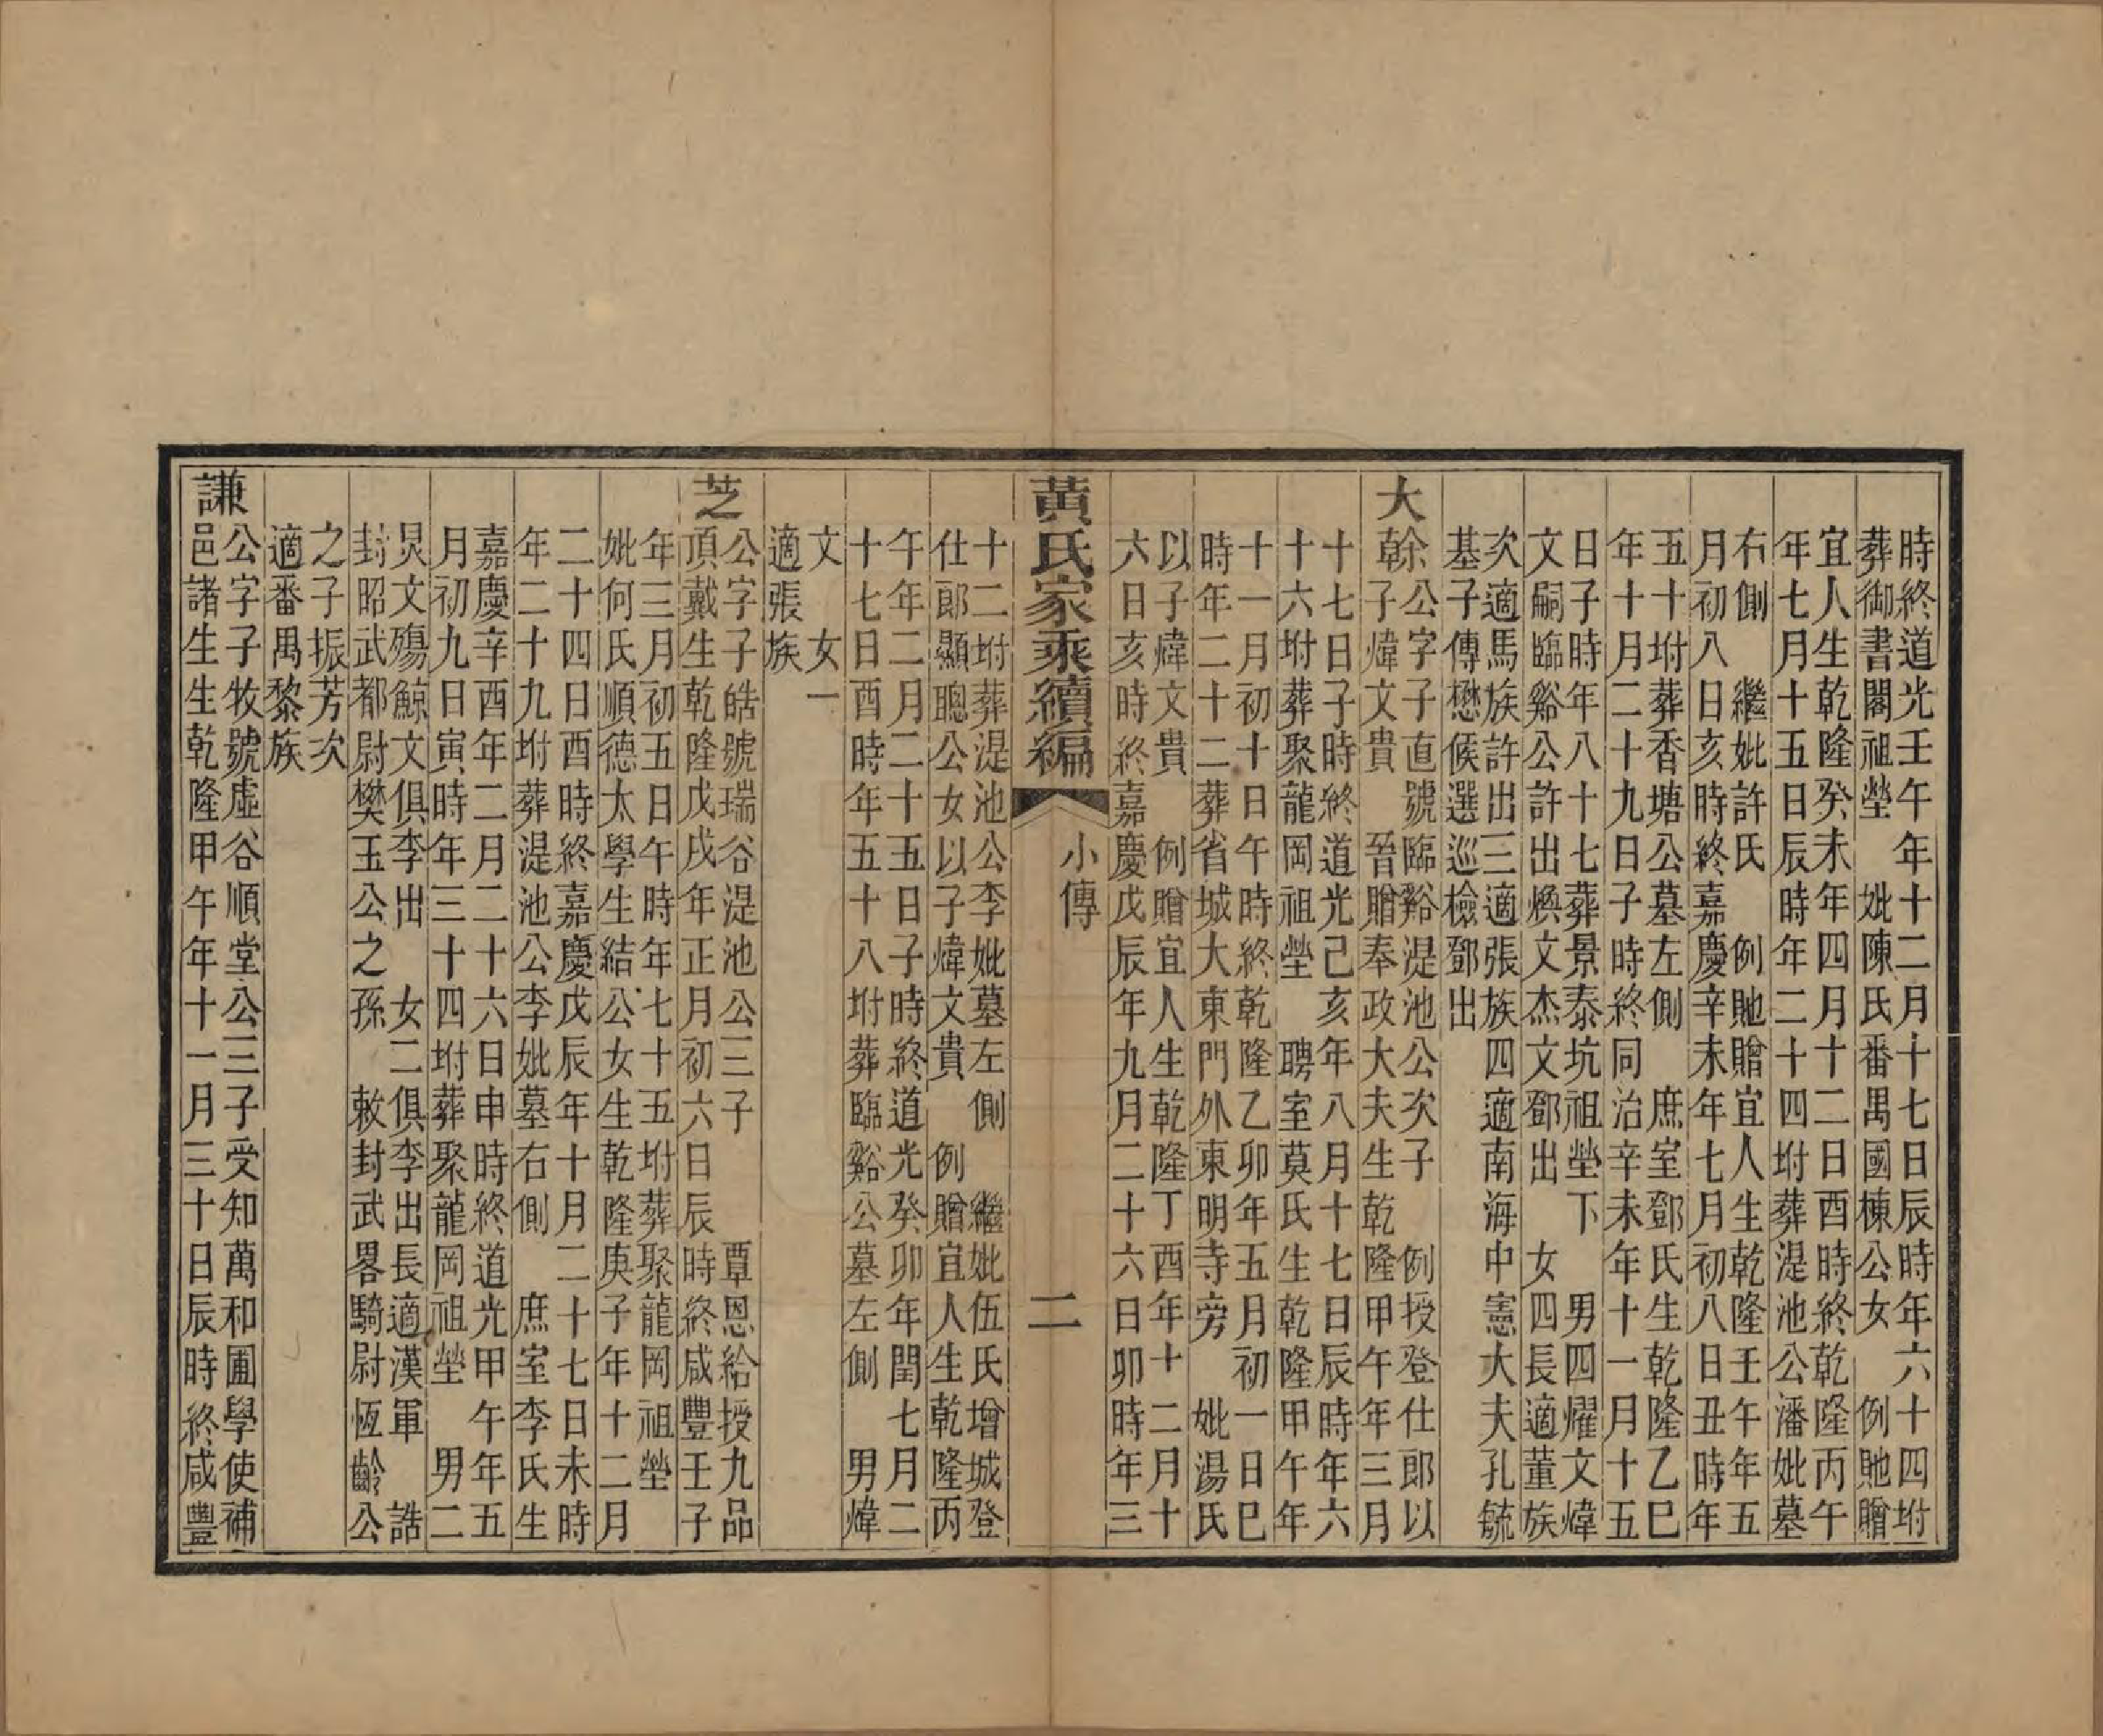 時終道光壬午年十二月十七日辰時年六十四坿
葬御書閣祖塋　妣陳氏番禺國棟公女　例貤贈
宜人生乾隆癸未年四月十二日酉時終乾隆丙午
年七月十五日辰時年二十四坿葬湜池公潘妣墓
右側　繼妣許氏　例貤贈宜人生乾隆壬午年五
月初八日亥時終嘉慶辛未年七月初八日丑時年
五十坿葬香塘公墓左側　庶室鄧氏生乾隆乙巳
年十月二十九日子時終同治辛未年十一月十五
日子時年八十七葬景泰坑祖塋下　男四燿文煒
文嗣臨谿公許出煥文杰文鄧出　女四長適董族
次適馬族許出三適張族四適南海中憲大夫孔毓
基子傳懋候選巡檢鄧出
大
餘公字子直號臨谿湜池公次子　例授登仕郎以
幹子煒文貴　晉贈奉政大夫生乾隆甲午年三月
十七日子時終道光己亥年八月十七日辰時年六
十六坿葬聚龍岡祖塋　聘室莫氏生乾隆甲午年
十一月初十日午時終乾隆乙卯年五月初一日巳
時年二十二葬省城大東門外東明寺旁　妣湯氏
以子煒文貴　例贈宜人生乾隆丁酉年十二月十
六日亥時終嘉慶戊辰年九月二十六日卯時年三
黃氏家乘續編　小傳　二
十二坿葬湜池公李妣墓左側　繼妣伍氏增城登
仕郎顯聰公女以子煒文貴　例贈宜人生乾隆丙
午年二月二十五日子時終道光癸卯年閏七月二
十七日酉時年五十八坿葬臨谿公墓左側　男煒
文　女一
適張族
芝
公字子皓號瑞谷湜池公三子　覃恩給授九品
頂戴生乾隆戊戌年正月初六日辰時終咸豐壬子
年三月初五日午時年七十五坿葬聚龍岡祖塋
妣何氏順德太學生結公女生乾隆庚子年十二月
二十四日酉時終嘉慶戊辰年十月二十七日未時
年二十九坿葬湜池公李妣墓右側　庶室李氏生
嘉慶辛酉年二月二十六日申時終道光甲午年五
月初九日寅時年三十四坿葬聚龍岡祖塋　男二
炅文殤鯨文俱李出　女二俱李出長適漢軍　誥
封昭武都尉樊玉公之孫　敕封武畧騎尉恆齡公
之子振芳次
適番禺黎族
謙
公字子牧號虛谷順堂公三子受知萬和圃學使補
邑諸生生乾隆甲午年十一月三十日辰時終咸豐